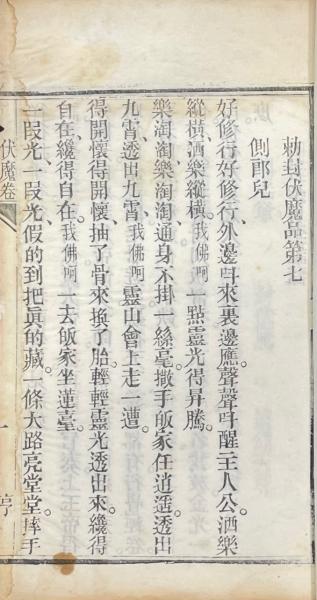 勅封伏魔品第七
側郎兒
好修行好修行、外邊叫來裏邊應。聲聲叫醒主人公、洒樂
縱橫洒樂縱橫、我佛呵一點靈光得昇騰。
樂淘淘樂淘淘、通身不掛一絲毫。撒手皈家任逍遥、透出
九霄透出九霄、我佛呵靈山會上走一遭。
得開懷得開懷、抽了骨來換了胎。輕輕靈光透出來、纔得
自在纔得自在。我佛呵一去皈家坐蓮臺。
一叚光一叚光、假的到把眞的藏。一條大路亮堂堂、摔手
伏魔卷
亭